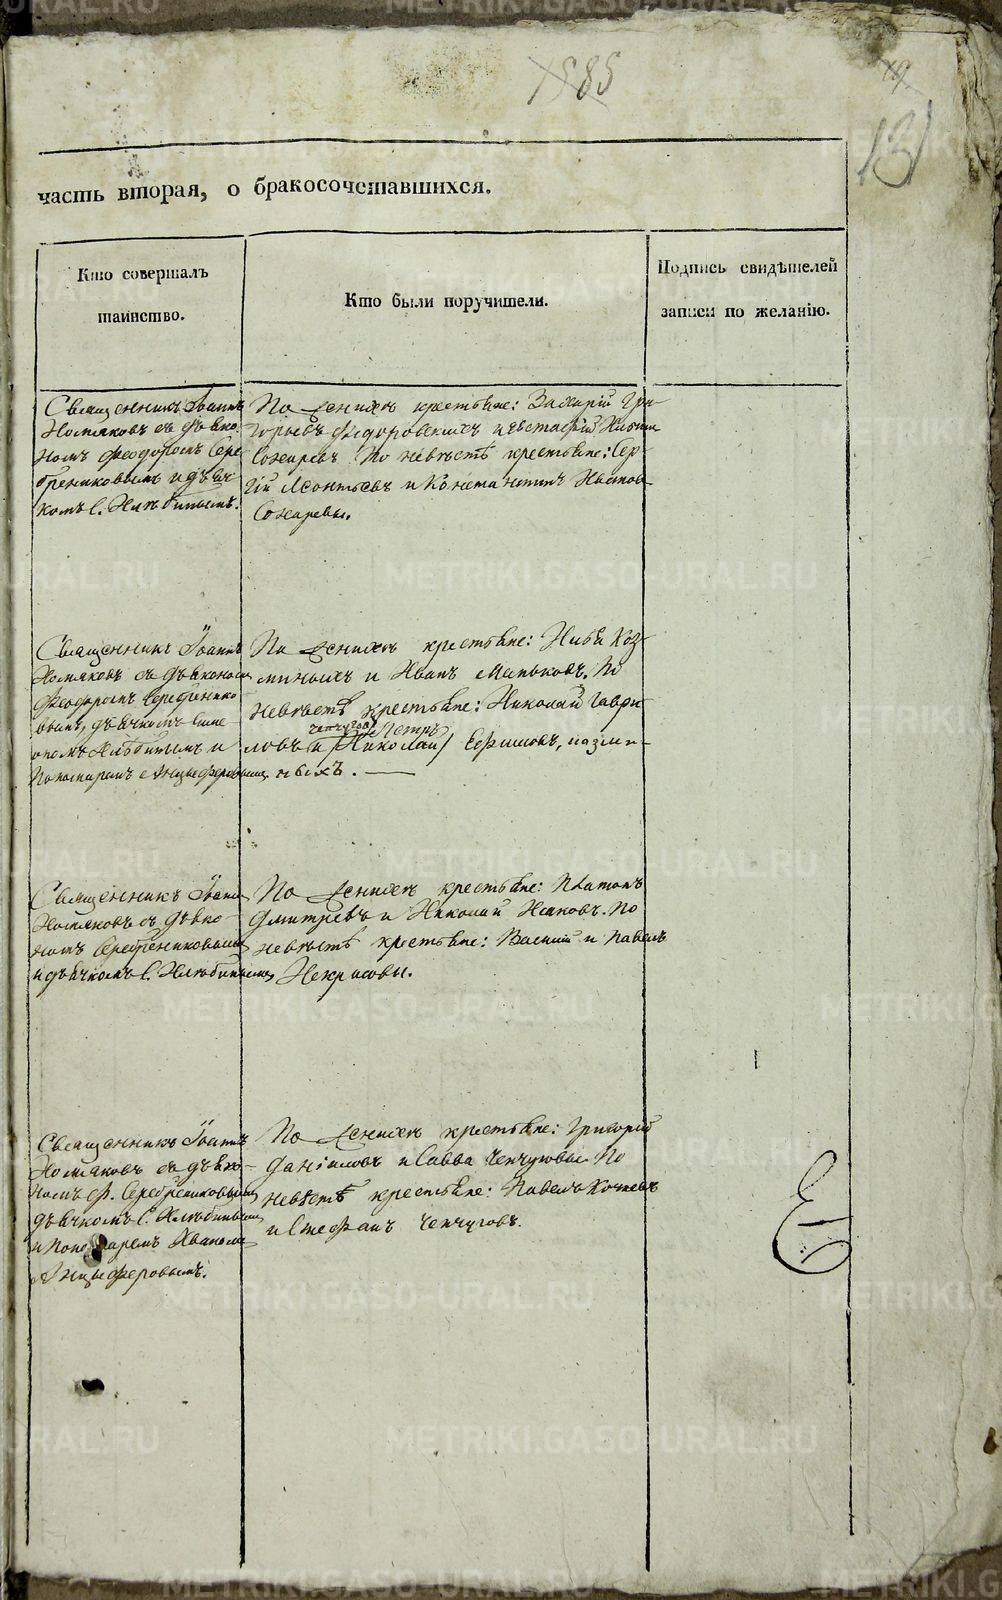 585
131
часть вторая, о бракосочетавшихся.
Кто совершалъ
таинство.
Кто были поручители.
Подпись свидѣтелей
записи по желанію.
Священникъ Іоаннъ
съ дьяко
номъ Феодоромъ Сере
брениковымъ и дьяч
комъ С.
По женихѣ крестьяне: Захарій Гри
горьевъ Федоровскихъ и Евстафій
По невѣстѣ крестьяне: Сер
гій Леонтьевъ и Константинъ
Священникъ Іоаннъ
съ дьякономъ
Феодоромъ Серебренико
вымъ, дьячкомъ Симе
ономъ и
Пономаремъ Анцыферовымъ
По женихѣ крестьяне: Коз
миныхъ и Иванъ Маньковъ. По
невѣстѣ крестьяне: Николай Гаври
Чепчуговъ Петръ
ловъ и (Николай) Ефимовъ,
Священникъ Іоаннъ
съ дьяко
номъ Серебрениковымъ
и дьячкомъ С.
По женихѣ крестьяне: Платонъ
Дмитревъ и Николай Исаковъ. По
невѣстѣ крестьяне: Василій и Павелъ
Некрасовы.
Священникъ Іоаннъ
съ дьяко
номъ Ф. Серебрениковымъ
дьячкомъ С.
и Пономаремъ
Анцыферовымъ.
По женихѣ крестьяне: Григорій
Даніиловъ и Савва Чепчуговы. По
невѣстѣ крестьяне: Павелъ
и Стефанъ Чепчуговъ.
METRIKI.GASO-URAL.RU